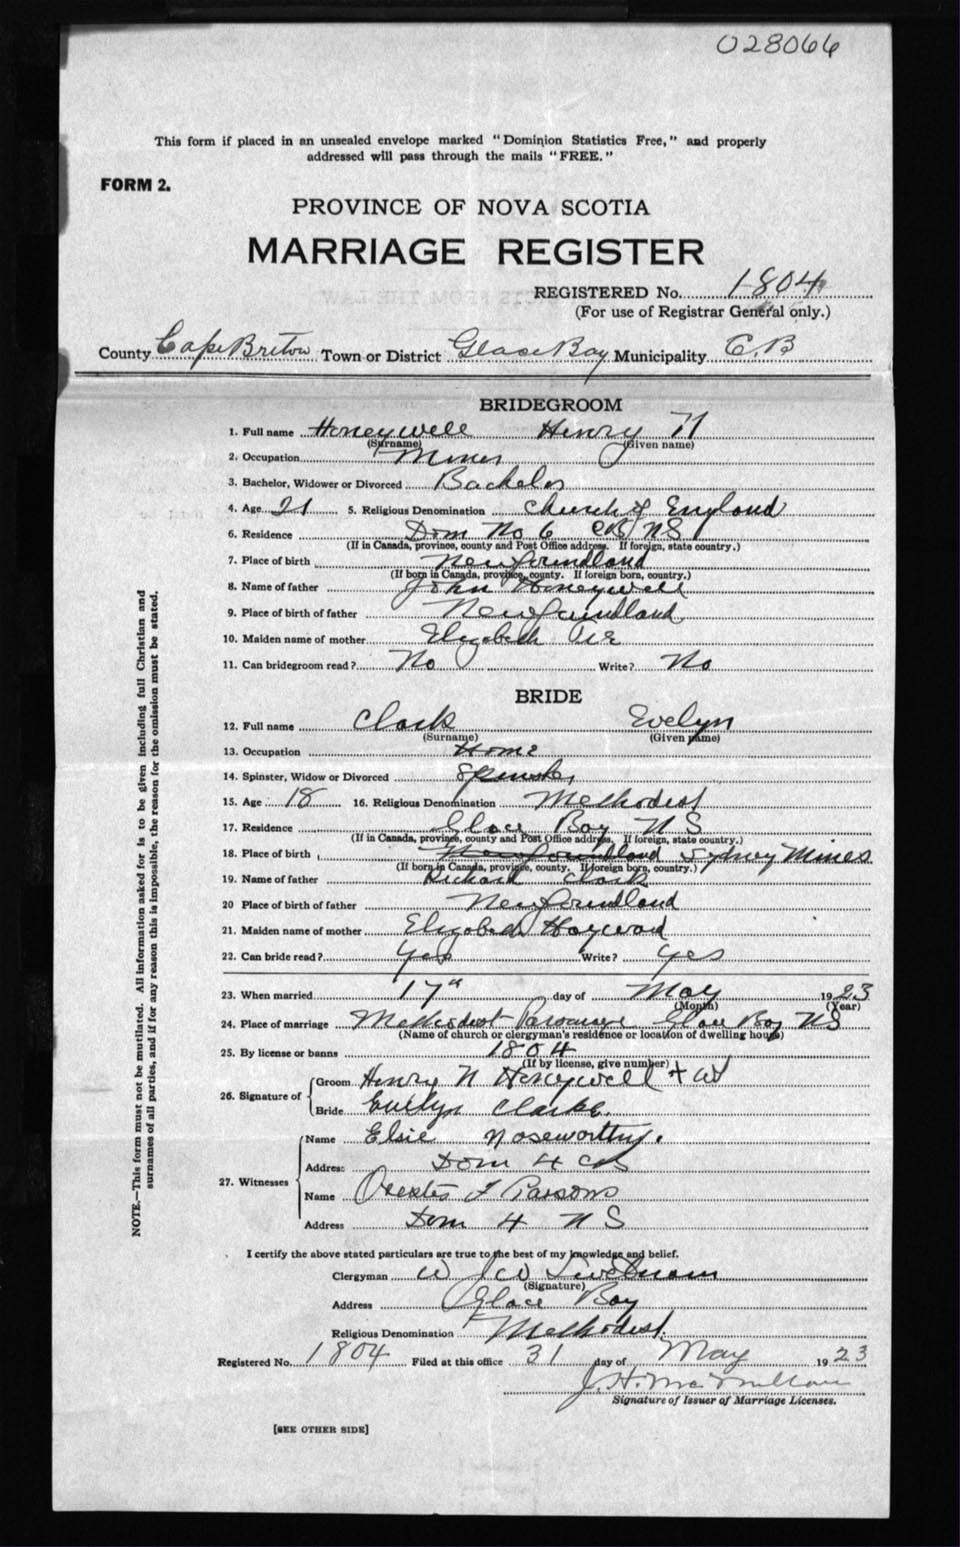 028066
This form if placed in an unsealed envelope marked "Dominion Statistics Free," and properly
addressed will pass through the mails "FREE."
FORM 2.
PROVINCE OF NOVA SCOTIA
MARRIAGE REGISTER
REGISTERED No. 1804
(For use of Registrar General only.)
County Cape Breton Town or District Glace Bay Municipality C.B
BRIDEGROOM
1. Full name Honeywell Henry N
(Surname) (Given name)
2. Occupation Miner
3. Bachelor, Widower or Divorced Bachelor
4. Age 21 5. Religious Denomination Church of England
6. Residence Dom No 6 CB NS
(If in Canada, province, county and Post Office address. If foreign, state country.)
7. Place of birth Newfoundland
(If born in Canada, province, county. If foreign born, country.)
8. Name of father John Honeywell
9. Place of birth of father Newfoundland
10. Maiden name of mother Elizabeth
11. Can bridegroom read? No Write? No
BRIDE
12. Full name Clark Evelyn
(Surname) (Given name)
13. Occupation Home
14. Spinster, Widow or Divorced Spinster
15. Age 18 16. Religious Denomination Methodist
17. Residence Glace Bay NS
(If in Canada, province, county and Post Office address. If foreign, state country.)
18. Place of birth Newfoundland Sydney Mines
(If born in Canada, province, county. If foreign born, country.)
19. Name of father Richard Clark
20 Place of birth of father Newfoundland
21. Maiden name of mother Elizabeth Haywood
22. Can bride read? Yes Write? Yes
23. When married 17th day of May 1923
(Month) (Year)
24. Place of marriage Methodist Parsonage Glace Bay NS
(Name of church or clergyman's residence or location of dwelling house)
25. By license or banns 1804
(If by license, give number)
26. Signature of Groom Henry N Honeywell +
Bride Evelyn Clarke.
27. Witnesses Name Elsie Noseworthy.
Address Dom 4 CB
Name Orestes F Parsons
Address Dom 4 N S
I certify the above stated particulars are true to the best of my knowledge and belief.
Clergyman W J W Swetnam
(Signature)
Address Glace Bay
Religious Denomination Methodist.
Registered No. 1804 Filed at this office 31 day of May 1923
J. H. McMillan
Signature of Issuer of Marriage Licenses.
[SEE OTHER SIDE]
NOTE.—This form must not be mutilated. All information asked for is to be given including full Christian and
surnames of all parties, and if for any reason this is impossible, the reason for the omission must be stated.